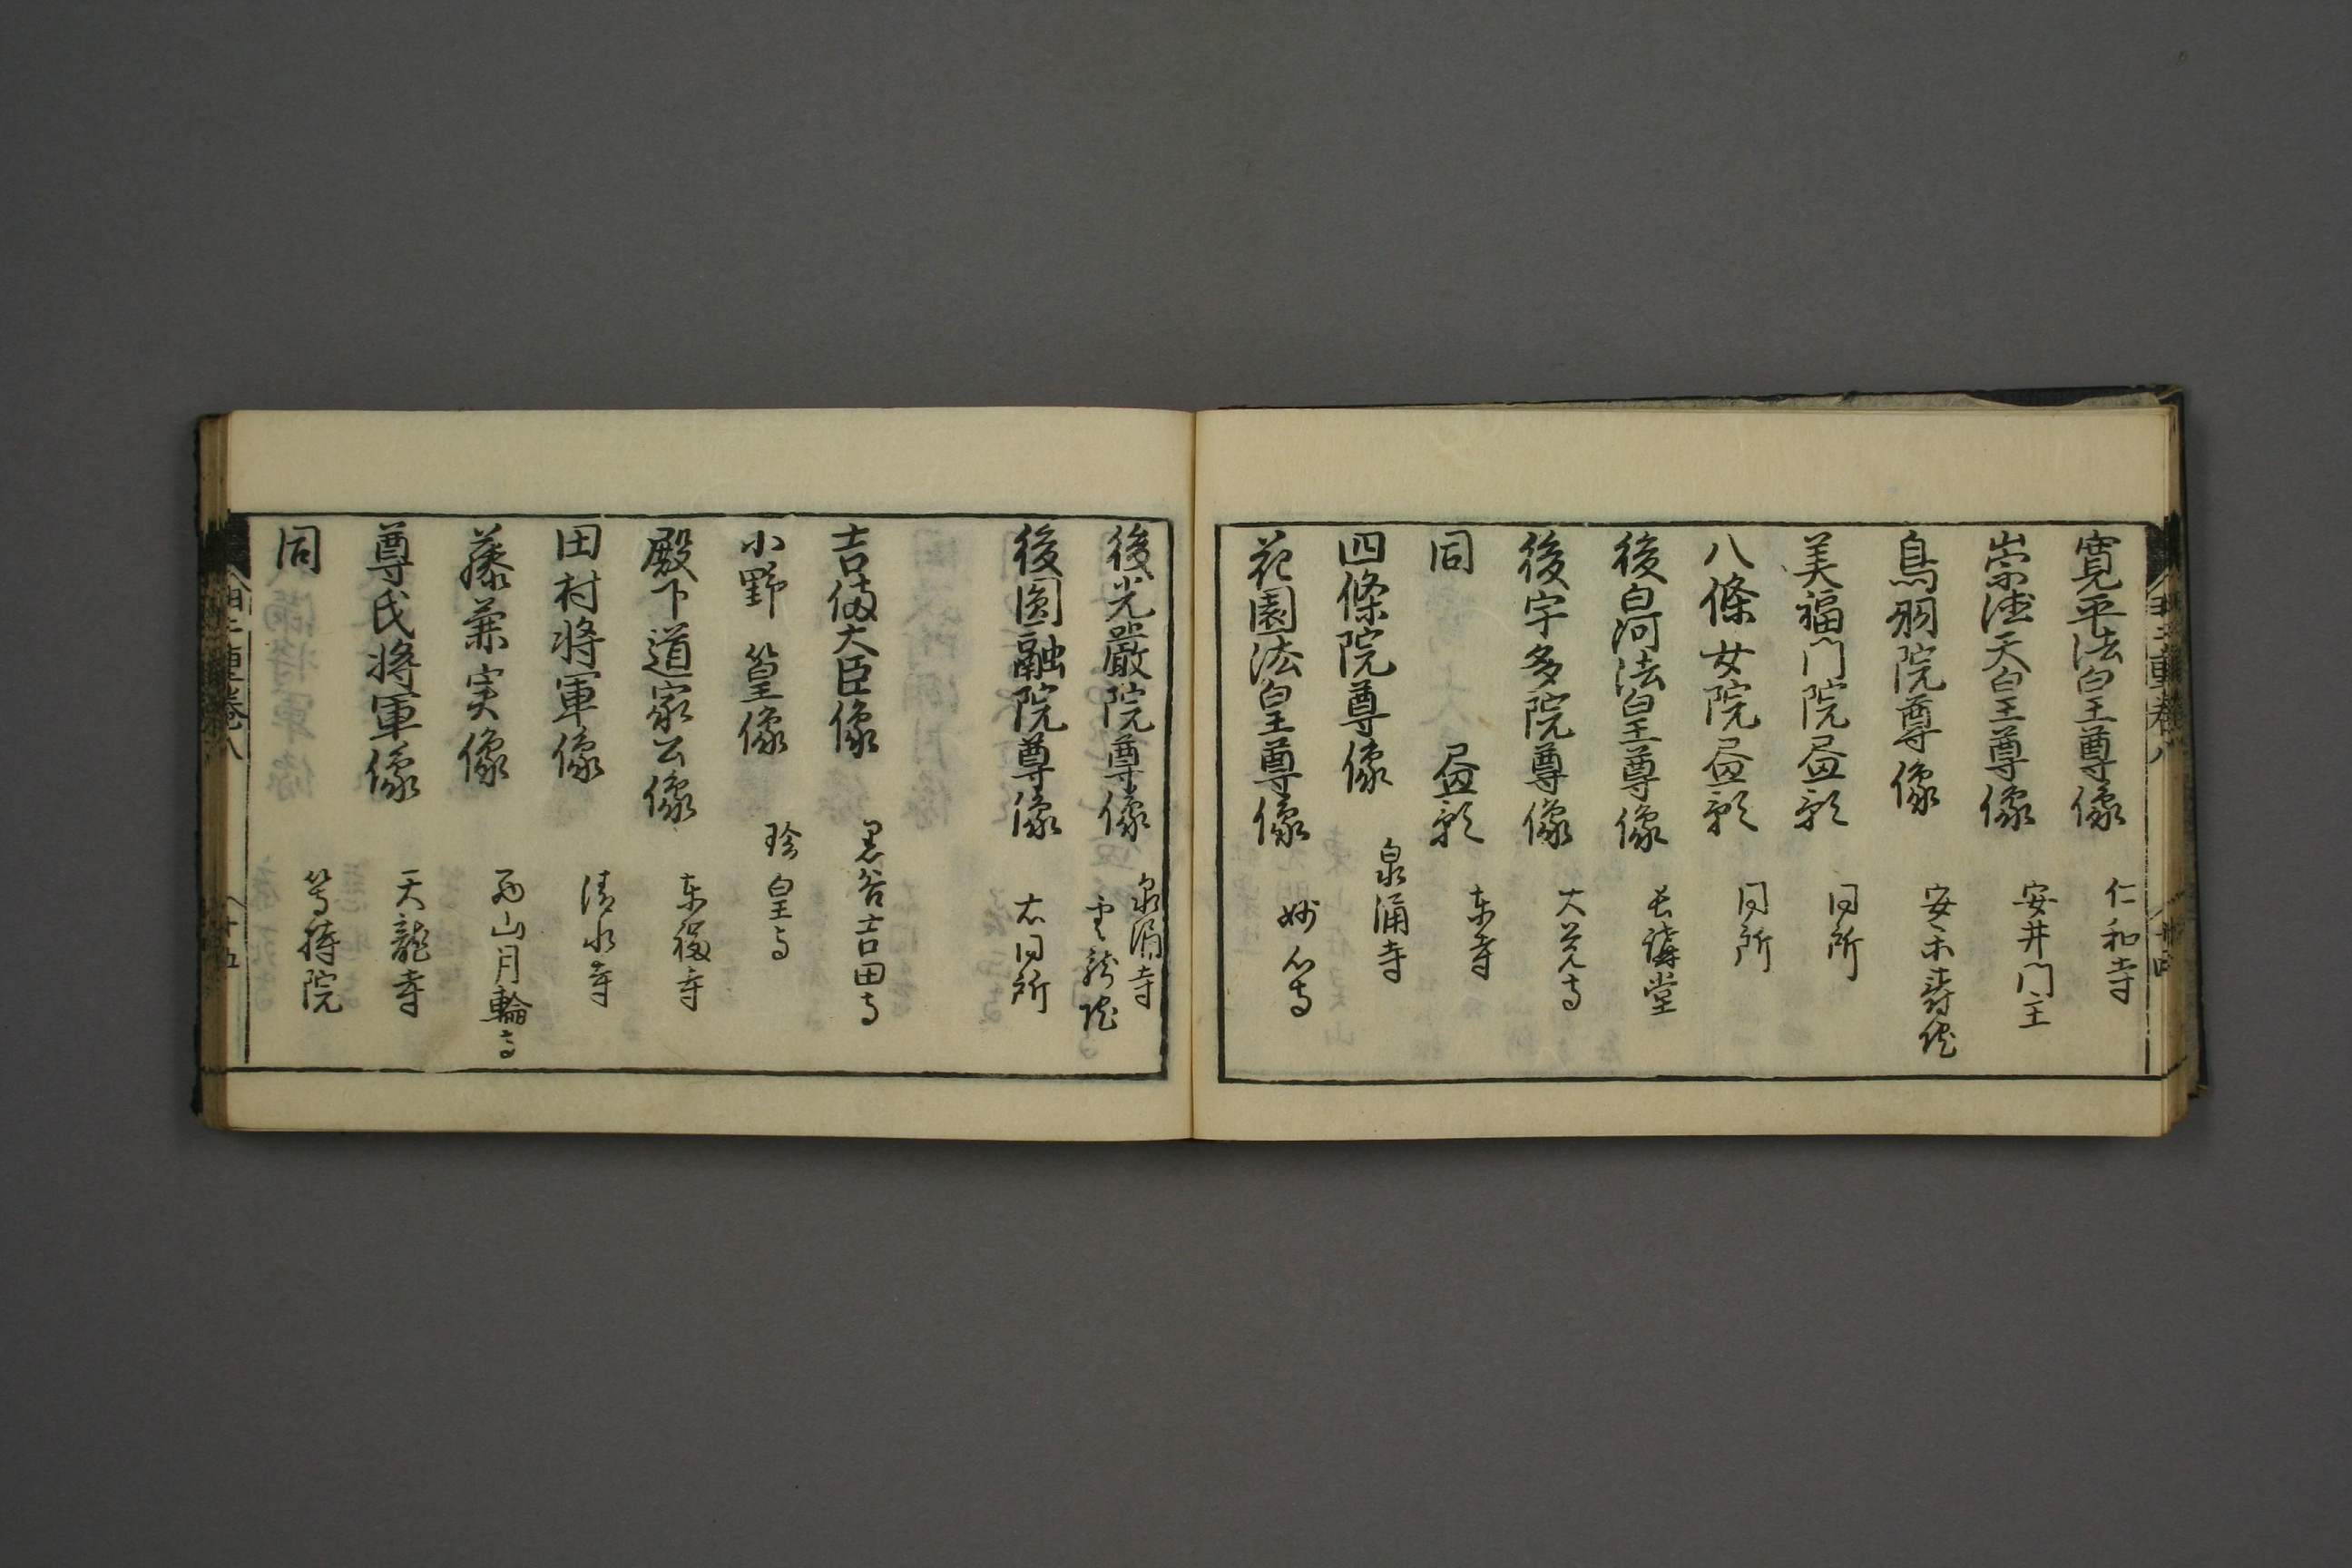 寛平法皇尊像 仁和寺
崇徳天皇尊像 安井門主
鳥羽院尊像 安楽寿院
美福門院昼影 同所
八條女院昼影 同所
後白河法皇尊像 長講堂
後宇多院尊像 大覚寺
同 昼影 東寺
四條院尊像 泉涌寺
花園法皇尊像 妙心寺
後光嚴院尊像 泉涌寺雲龍院
後圓融院尊像 右同所
吉備大臣像 黒谷吉田寺
小野篁像 珍皇寺
殿下道家公像 東福寺
田村将軍像 清水寺
藤兼実像 西山月輪寺
尊氏将軍像 天龍寺
同 等持院